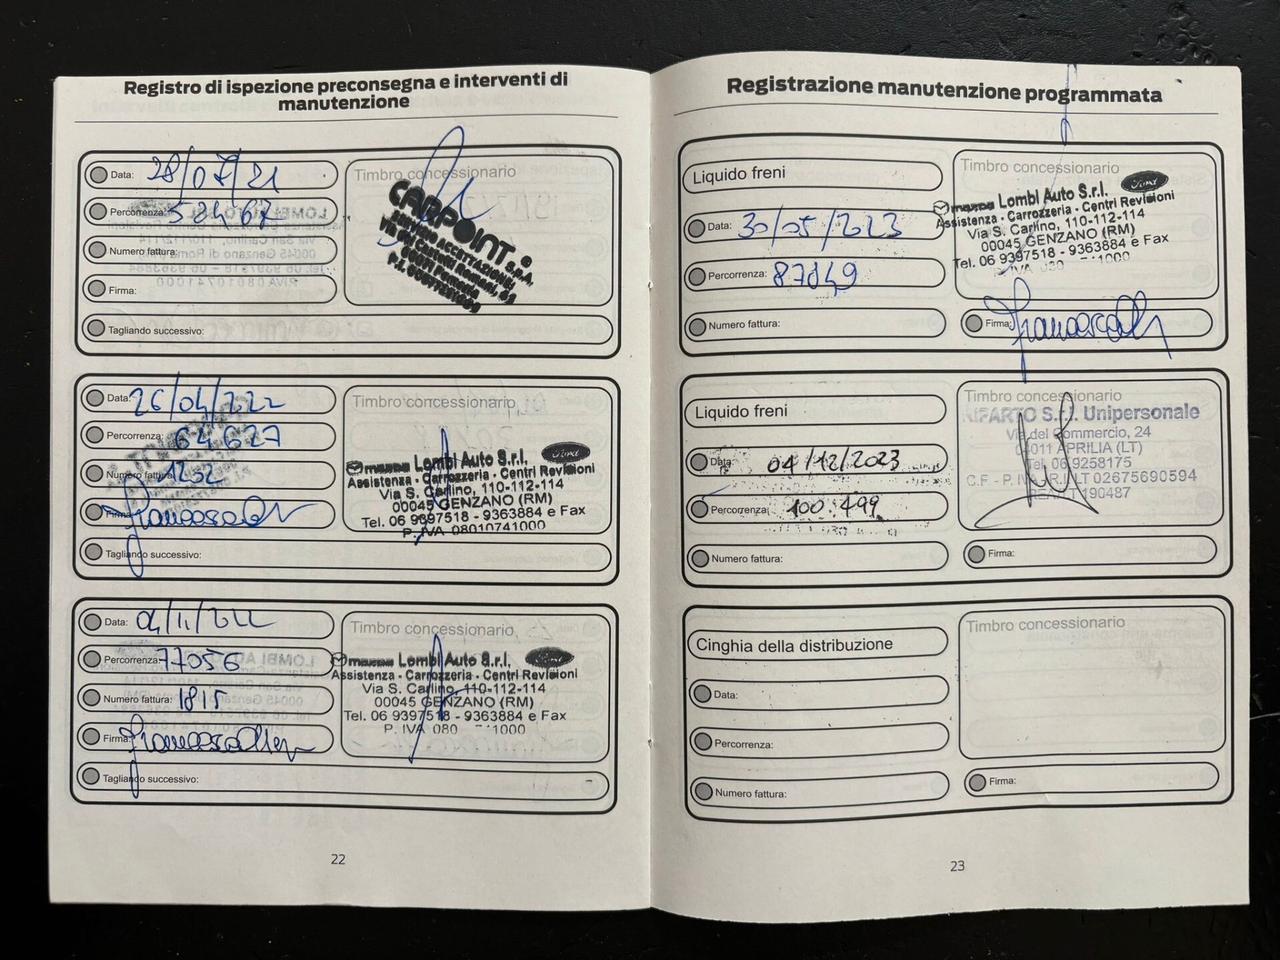 Registro di ispezione preconsegna e interventi di
manutenzione
Data: 28/07/21
Percorrenza: 52467
Numero fattura:
Firma:
Tagliando successivo:
Timbro concessionario
CARPOINT S.P.A.
Data: 26/04/222
Percorrenza: 64627
Numero fattura: 1232
Firma:
Tagliando successivo:
Timbro concessionario
mazda Lombi Auto S.r.l. Ford
Assistenza - Carrozzeria - Centri Revisioni
Via S. Carlino, 110-112-114
00045 GENZANO (RM)
Tel. 06 9397518 - 9363884 e Fax
P. IVA 08010741000
Data: 04/11/222
Percorrenza: 77056
Numero fattura: 1815
Firma:
Tagliando successivo:
Timbro concessionario
mazda Lombi Auto S.r.l. Ford
Assistenza - Carrozzeria - Centri Revisioni
Via S. Carlino, 110-112-114
00045 GENZANO (RM)
Tel. 06 9397518 - 9363884 e Fax
P. IVA 080 1000
22
Registrazione manutenzione programmata
Liquido freni
Data: 30/05/2023
Percorrenza: 87849
Numero fattura:
Timbro concessionario
mazda Lombi Auto S.r.l. Ford
Assistenza - Carrozzeria - Centri Revisioni
Via S. Carlino, 110-112-114
00045 GENZANO (RM)
Tel. 06 9397518 - 9363884 e Fax
P. IVA 080 1000
Firma:
Liquido freni
Data: 04/12/2023
Percorrenza: 100.499
Numero fattura:
Timbro concessionario
RIPARTO S.r.l. Unipersonale
Via del Commercio, 24
04011 APRILIA (LT)
Tel. 06 9258175
C.F. - P. IVA R.I. LT 02675690594
REA LT 190487
Firma:
Cinghia della distribuzione
Data:
Percorrenza:
Numero fattura:
Timbro concessionario
Firma:
23